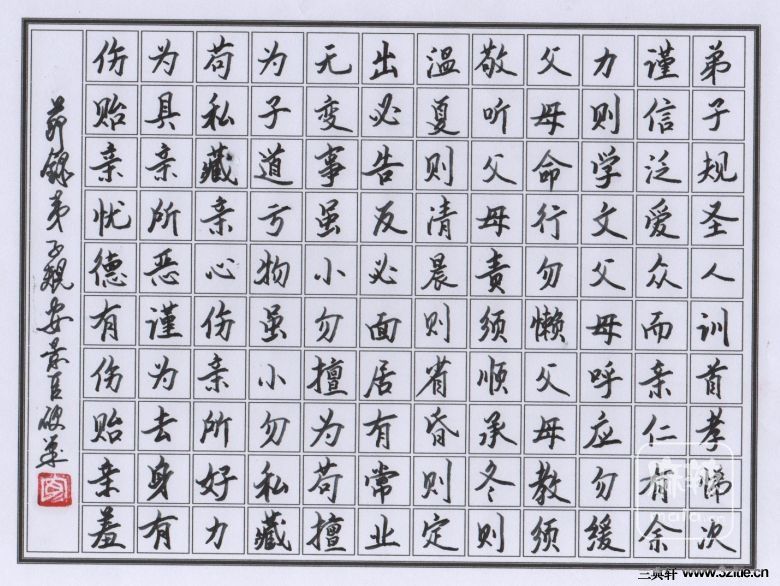 弟子规圣人训首孝悌次
谨信泛爱众而亲仁有余
力则学文父母呼应勿缓
父母命行勿懒父母教须
敬听父母责须顺承冬则
温夏则清晨则省昏则定
出必告反必面居有常业
无变事虽小勿擅为苟擅
为子道亏物虽小勿私藏
苟私藏亲心伤亲所好力
为具亲所恶谨为去身有
伤贻亲忧德有伤贻亲羞
节录弟子规
www.3zitie.cn